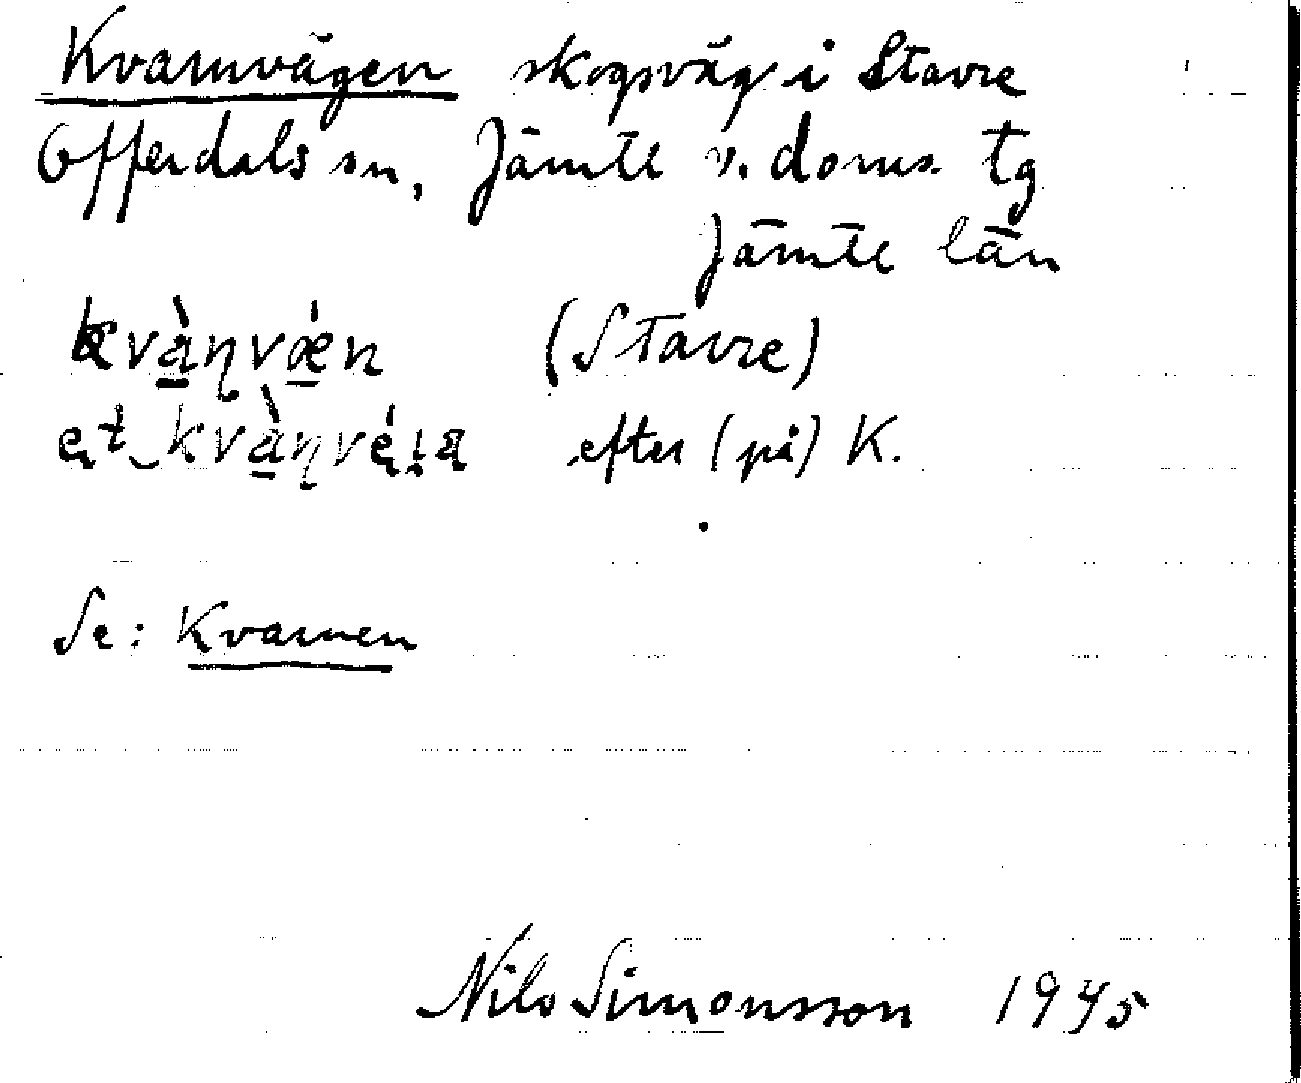 Kvarnvägen skogsväg i Stavre
Offerdals sn, Jämtl v. doms. tg
Jämtl län
kvàɳvǽn (Stavre)
efter (på) K.
Se: Kvarnen
Nils Simonsson 1945